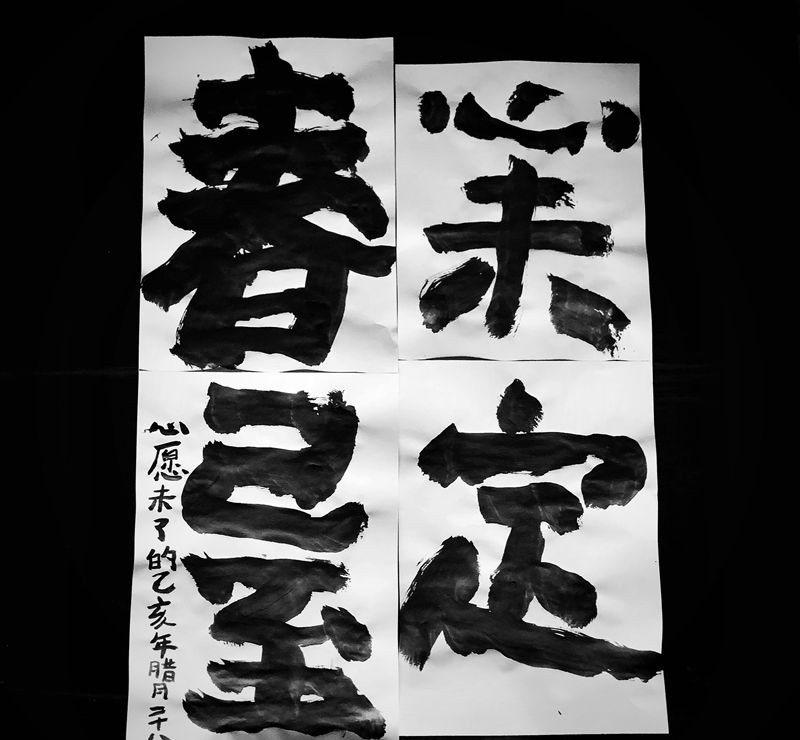 心未定
春已至
心愿未了的乙亥年腊月二十八